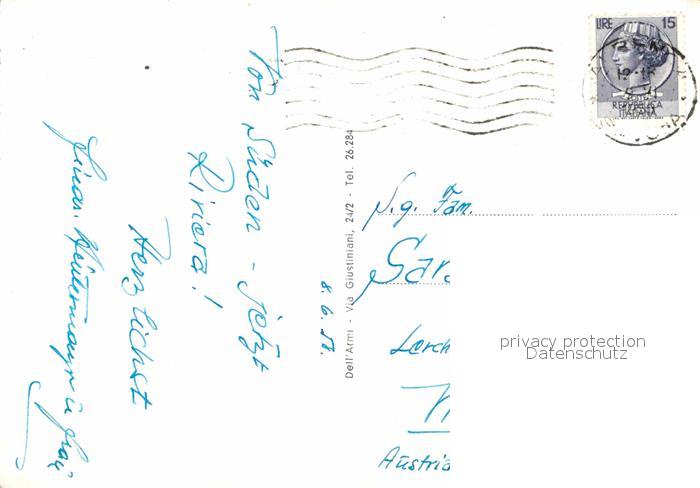 Von Süden - jetzt
Riviera!
Herzlichst
8. 6. 58.
Dell'Armi - Via Giustiniani, 24/2 - Tel. 26.284
LIRE 15
REPVBBLICA
ITALIANA
S. g. Fam.
Lerch
Austria
privacy protection
Datenschutz